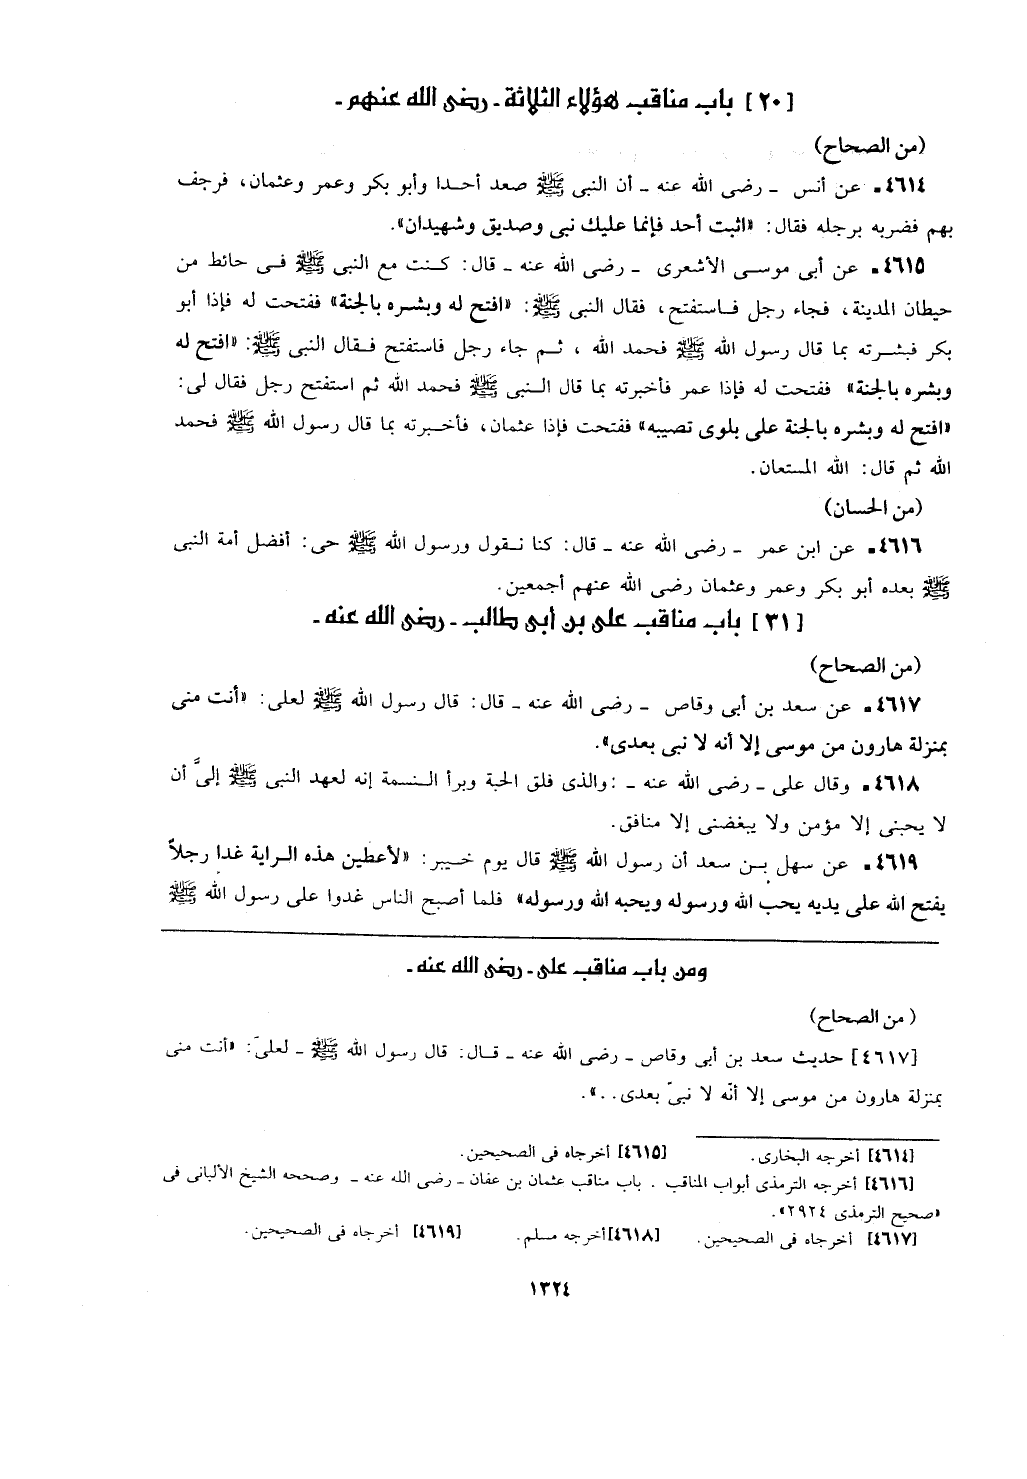 [٢٠] باب مناقب هؤلاء الثلاثة ـ رضى الله عنهم ـ
(من الصحاح)
٤٦١٤. عن أنس ـ رضى الله عنه ـ أن النبى ﷺ صعد أحدا وأبو بكر وعمر وعثمان، فرجف
بهم فضربه برجله فقال: «اثبت أحد فإنما عليك نبى وصديق وشهيدان».
٤٦١٥. عن أبى موسى الأشعرى ـ رضى الله عنه ـ قال: كنت مع النبى ﷺ فى حائط من
حيطان المدينة، فجاء رجل فاستفتح، فقال النبى ﷺ: «افتح له وبشره بالجنة» ففتحت له فإذا أبو
بكر فبشرته بما قال رسول الله ﷺ فحمد الله ، ثم جاء رجل فاستفتح فقال النبى ﷺ: «افتح له
وبشره بالجنة» ففتحت له فإذا عمر فأخبرته بما قال النبى ﷺ فحمد الله ثم استفتح رجل فقال لى:
«افتح له وبشره بالجنة على بلوى تصيبه» ففتحت فإذا عثمان، فأخبرته بما قال رسول الله ﷺ فحمد
الله ثم قال: الله المستعان.
(من الحسان)
٤٦١٦. عن ابن عمر ـ رضى الله عنه ـ قال: كنا نقول ورسول الله ﷺ حى: أفضل أمة النبى
ﷺ بعده أبو بكر وعمر وعثمان رضى الله عنهم أجمعين.
[٣١] باب مناقب على بن أبى طالب ـ رضى الله عنه ـ
(من الصحاح)
٤٦١٧. عن سعد بن أبى وقاص ـ رضى الله عنه ـ قال: قال رسول الله ﷺ لعلى: «أنت منى
بمنزلة هارون من موسى إلا أنه لا نبى بعدى».
٤٦١٨. وقال على ـ رضى الله عنه ـ :والذى فلق الحبة وبرأ النسمة إنه لعهد النبى ﷺ إلىَّ أن
لا يحبنى إلا مؤمن ولا يبغضنى إلا منافق.
٤٦١٩. عن سهل بن سعد أن رسول الله ﷺ قال يوم خيبر: «لأعطين هذه الراية غدا رجلاً
يفتح الله على يديه يحب الله ورسوله ويحبه الله ورسوله» فلما أصبح الناس غدوا على رسول الله ﷺ
ومن باب مناقب على ـ رضى الله عنه ـ
(من الصحاح)
[٤٦١٧] حديث سعد بن أبى وقاص ـ رضى الله عنه ـ قال: قال رسول الله ﷺ ـ لعلىّ: «أنت منى
بمنزلة هارون من موسى إلا أنّه لا نبىّ بعدى..».
[٤٦١٤] أخرجه البخارى. [٤٦١٥] أخرجاه فى الصحيحين.
[٤٦١٦] أخرجه الترمذى أبواب المناقب . باب مناقب عثمان بن عفان ـ رضى الله عنه ـ وصححه الشيخ الألبانى فى
«صحيح الترمذى ٢٩٢٤».
[٤٦١٧] أخرجاه فى الصحيحين. [٤٦١٨]أخرجه مسلم. [٤٦١٩] أخرجاه فى الصحيحين.
١٣٢٤